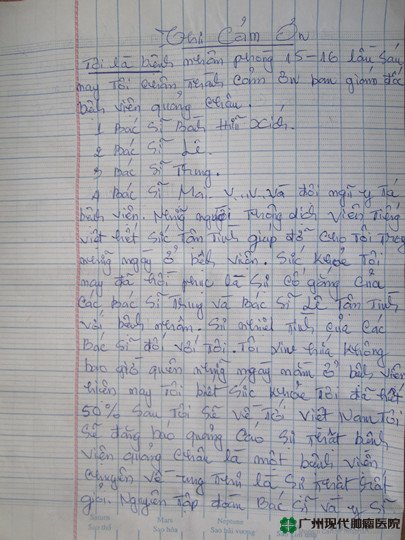 Thư Cảm Ơn
Tôi là bệnh nhân phòng 15-16 lầu sáu
nay Tôi chân Thành cảm ơn ban giám đốc
bệnh viện quảng châu.
1 Bác Sĩ Bành Hiểu Xích.
2 Bác Sĩ Lê.
3 Bác Sĩ Trung.
4 Bác Sĩ Mai. v...v. và đội ngũ y Tá
bệnh viện. Những người Thông dịch viên Tiếng
việt hết Sức Tận Tình giúp đỡ cho Tôi Trong
những ngày ở bệnh viện. Sức khỏe Tôi
nay đã hồi phục là Sự cố gắng của
Các Bác Sĩ Trung và Bác Sĩ Lê Tận Tình
với bệnh nhân. Sự nhiệt Tình của Các
Bác Sĩ đối với Tôi. Tôi xin hứa không
bao giờ quên những ngày nằm ở bệnh viện
hiện nay Tôi biết Sức khỏe Tôi đã hết
50% Sau Tôi Sẽ về Tới Việt Nam Tôi
Sẽ đăng báo quảng Cáo Sự Thật bệnh
viện quảng châu là một bệnh viện
chuyên về ung Thư là Sự Thật rất
giỏi. Nguyên Tập đoàn Bác Sĩ và y Sĩ
Saturn
Sao thổ
Mars
Sao hỏa
Neptune
Sao hải vương
广州现代肿瘤医院